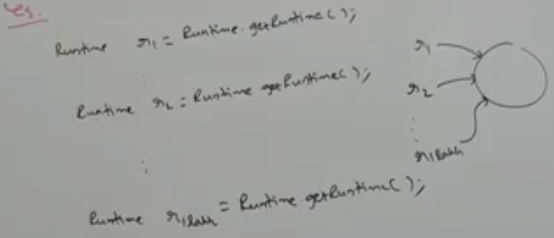 eg.
Runtime r1 = Runtime.getRuntime();
Runtime r2 = Runtime.getRuntime();
Runtime r1lakh = Runtime.getRuntime();
r1
r2
r1lakh